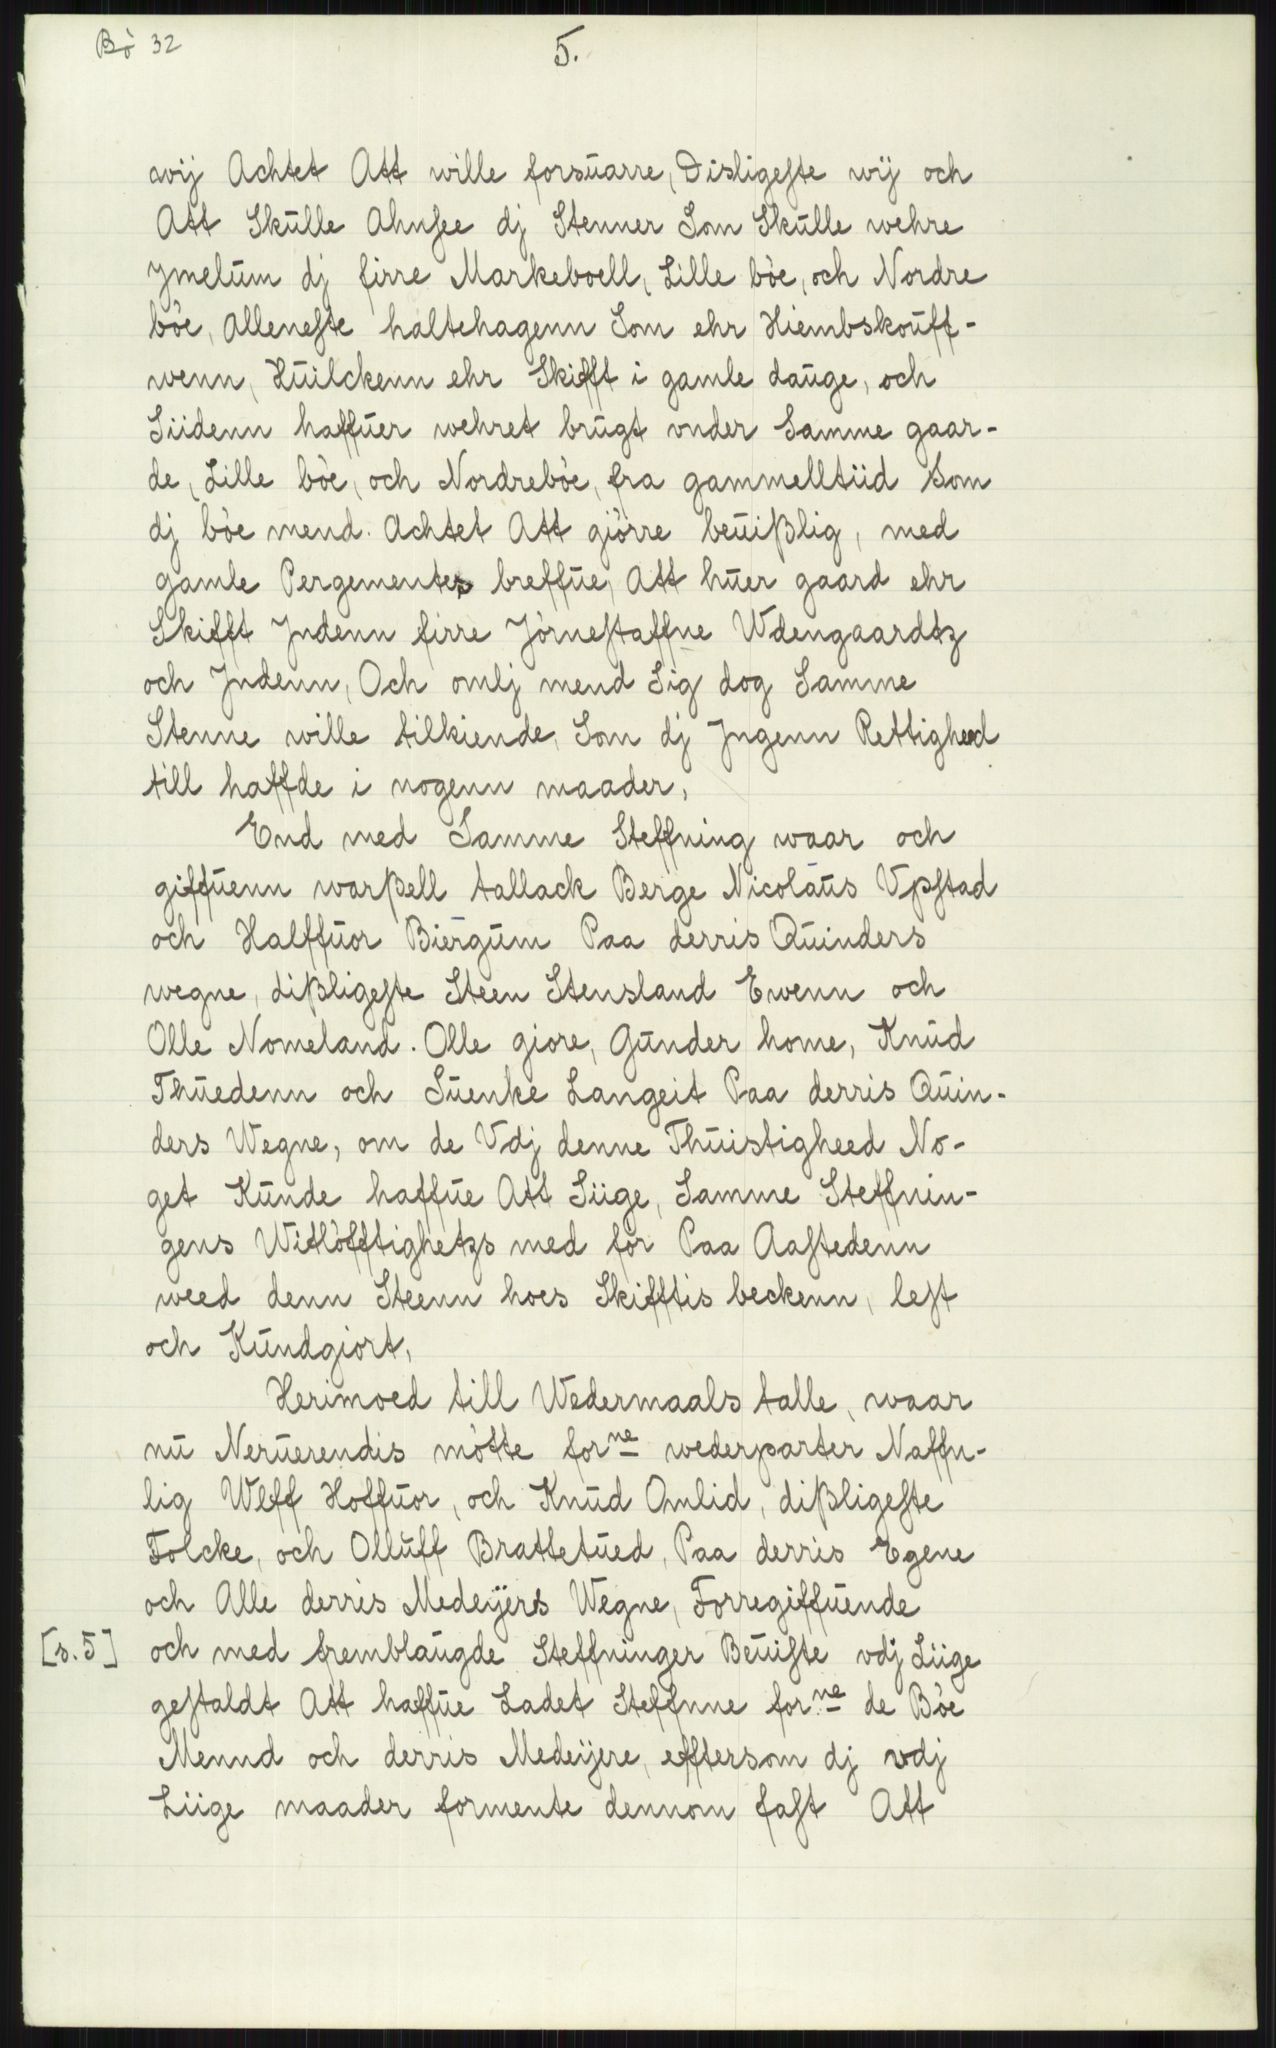 Bò 32
5.
wij Achtet Att wille forsuarre, Disligeste wij och
Att Skulle Ahnsee dj Stenner Som Skulle wehre
Jmelum dj firre Markeboell, Lille bòe, och Nordre
bòe, alleneste haltehagenn Som ehr Hiembskouff-
wenn, Huilckenn ehr Skifft i gamle dauge, och
Siidenn haffuer wehret brugt vnder Samme gaar-
de, Lille bòe, och Nordrebòe, fra gammelltiid Som
dj bòe mend. Achtet Att giòrre beuißlig, med
gamle Pergementes breffue, Att huer gaard ehr
Skifft Jndenn firre Jòrnestaffne Wdengaardtz
och Jndenn, Och omlj mend Sig dog Samme
Stenne wille tilkiende, Som dj Jngenn Rettigheed
till haffde i nogenn maader,
End med Samme Steffning waar och
giffuenn warßell tallack Berge Nicolaus Vpstad
och Halffuor Biergum Paa derris Quinders
wegne, dißligeste Steen Stensland Ewenn och
Olle Nomeland. Olle giore, Gunder home, Knud
Thuedenn och Suenke Langeit Paa derris Quin-
ders Wegne, om de Vdj denne Thuistigheed No-
get Kunde haffue Att Siige, Samme Steffnin-
gens Witlòfftighetzs med for Paa Aastedenn
weed denn Steenn hoes Skifftis beckenn, lest
och Kundgiort,
Herimoed till Wedermaals talle, waar
nu Neruerendis mòtte forne wederparter Naffn-
lig Wlff Hoffuor, och Knud Omlid, dißligeste
Folcke, och Olluff Brattetued, Paa derris Egene
och Alle derris Medeÿers Wegne, Forregiffuende
[s. 5] och med fremblaugde Steffninger Beuiste vdj Liige
gestaldt Att haffue Ladet Steffnne forne de Bòe
Mennd och derris Medeÿere, efftersom dj vdj
Liige maader formente dennom fast Att